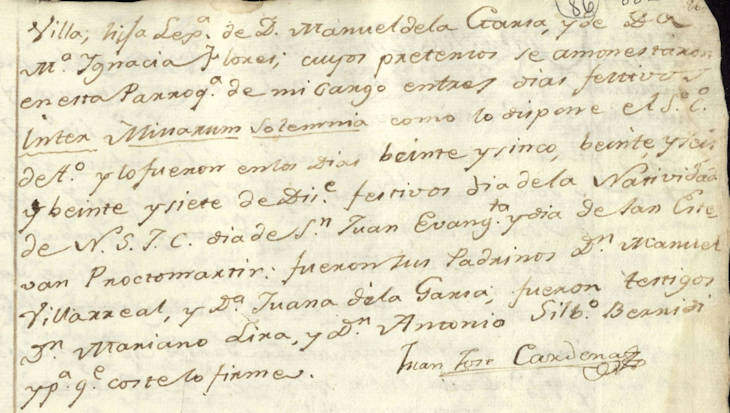 (86)
Villa, hija Lex.ª de D. Manuel de la Garsa, y de D.ª
M.ª Ignacia Flores; cuyos pretensos se amonestaron
en esta Parroq.ª de mi cargo entres dias festivos
Inter Missarum Solemnia como lo dispone el S.C.
de T.º y lo fueron en los dias beinte y sinco, beinte, y seis
y beinte y siete de Di.e festivos dia de la Natividad
de N. S. J. C. dia de S.n Juan Evang.ta y dia de San Este
van Proctomartir: fueron sus Padrinos D.n Manuel
Villarreal, y D.ª Juana de la Garsa; fueron testigos
D.n Mariano Lira, y D.n Antonio Silb.º Bernidi
y p.ª q.e coste lo firme.
Juan Jose Cardenas